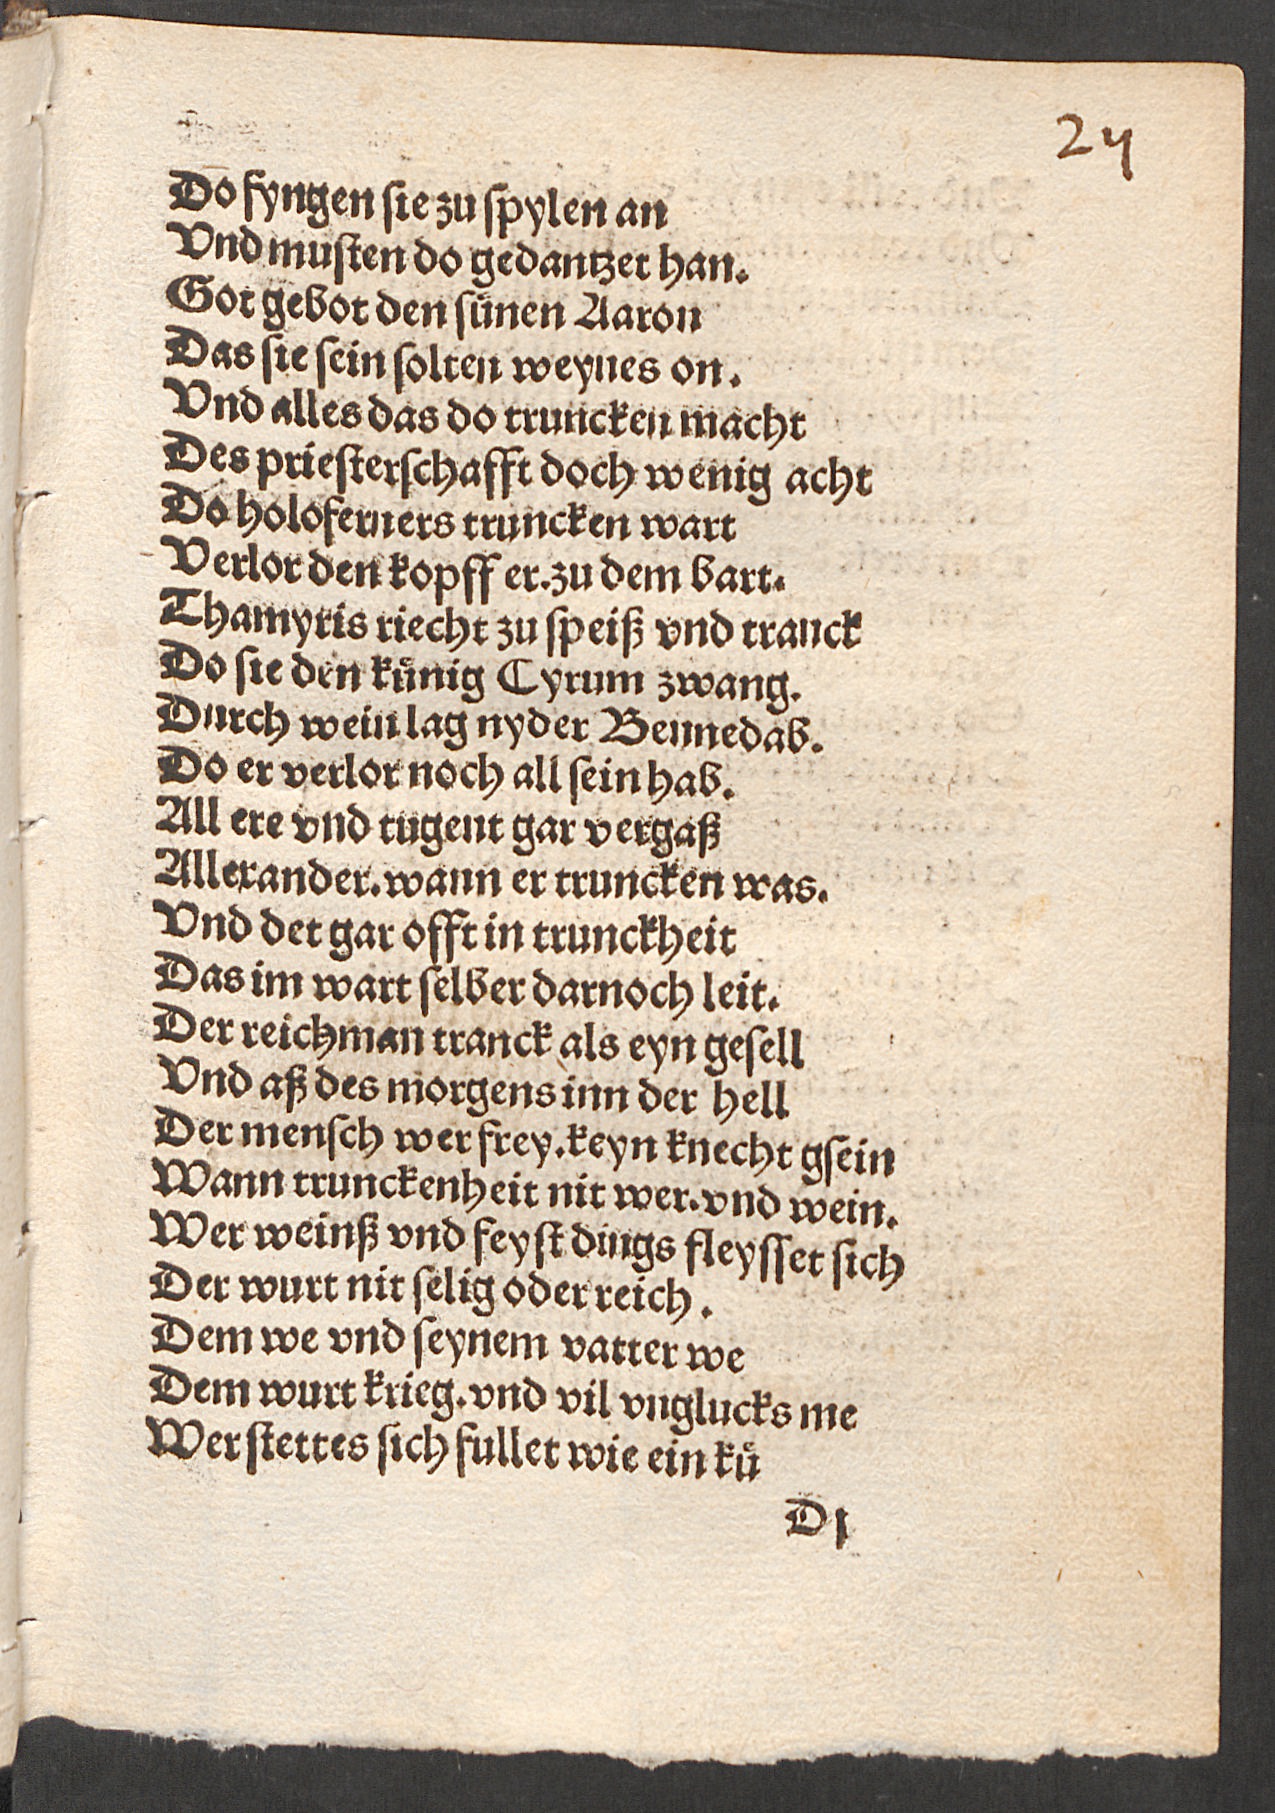 24
Do fyngen sie zu spylen an
Vnd musten do gedantzet han.
Got gebot den súnen Aaron
Das sie sein solten weynes on.
Vnd alles das do truncken macht
Des priesterschafft doch wenig acht
Do holoferners truncken wart
Verlor den kopff er.zu dem bart.
Thamyris riecht zu speiß vnd tranck
Do sie den kůnig Cyrum zwang.
Durch wein lag nyder Bennedab.
Do er verlor noch all sein hab.
All ere vnd tugent gar vergaß
Allexander.wann er truncken was.
Vnd det gar offt in trunckheit
Das im wart selber darnoch leit.
Der reichman tranck als eyn gesell
Vnd aß des morgens inn der hell
Der mensch wer frey.keyn knecht gsein
Wann trunckenheit nit wer.vnd wein.
Wer weinß vnd feyst dings fleysset sich
Der wurt nit selig oder reich.
Dem we vnd seynem vatter we
Dem wurt krieg.vnd vil vnglucks me
Wer stettes sich fullet wie ein ků
D j